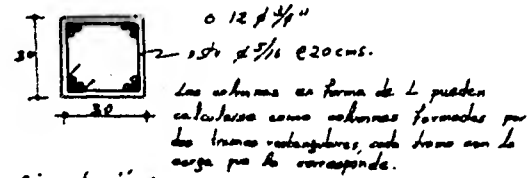 o 12 ø 3/4"
30
ø 5/16 @ 20 cms.
30
Las columnas en forma de L pueden
calcularse como columnas formadas por
dos tramos rectangulares, cada tramo con la
carga que le corresponde.